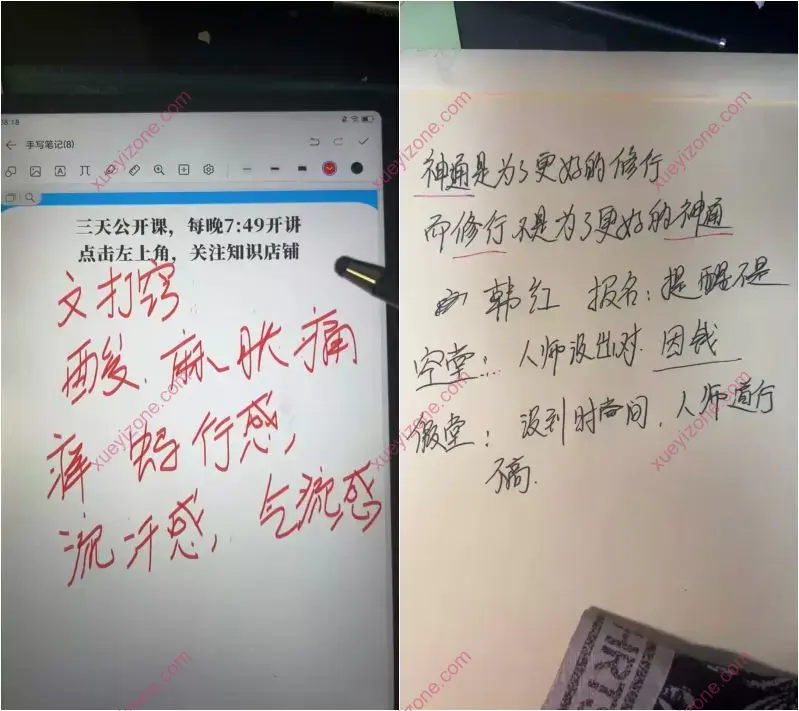 手写笔记(8)
三天公开课，每晚7:49开讲
点击左上角，关注知识店铺
文打窍
酸、麻、胀痛
痒 蚂行感，
流汗感，气流感
神通是为了更好的修行
而修行不是为了更好的神通
韩红 报名：提醒不是
空堂：人师没出对.因钱
堂：没到时间，人师道行
不高.
xueyizone.com